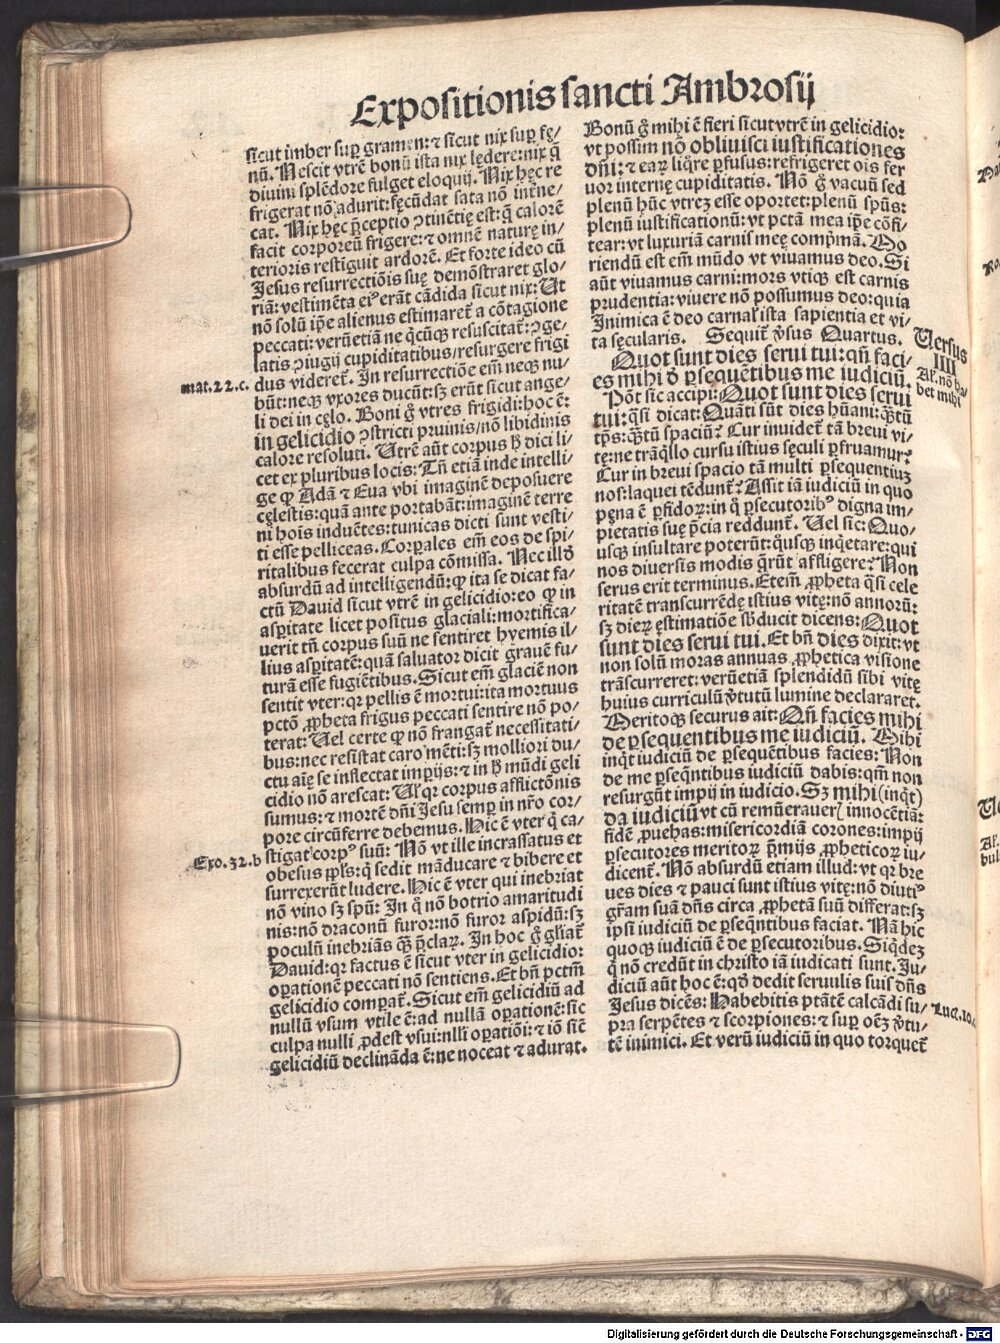 Expositionis sancti Ambrosij
sicut imber sup̱ gramen: ⁊ sicut nix sup̱ fę/
nū. Nescit vtrē bonū ista nix lędere: nix q̄
diuini splēdore fulget eloquij. Nix hęc re
frigerat nō adurit: fęcūdat sata nō inēne/
cat. Nix hęc p̄ceptio ↄtinētię est: q̄ calorē
facit corporeū frigere: ⁊ omnē naturę in/
terioris restiguit ardorē. Et forte ideo cū
Jesus resurrectiōis suę demōstraret glo/
riā: vestimēta eiꝰ erāt cādida sicut nix: Ut
nō solū ip̄e alienus estimaret᷑ a cōtagione
peccati: verūetiā ne q̄cūqꝫ resuscitat᷑: ↄge/
latis ↄiugij cupiditatibus/ resurgere frigi
mat. 22. c.
dus videret᷑. In resurrectiōe em̄ neqꝫ nu/
būt: neqꝫ vxores ducūt: sꝫ erūt sicut ange/
li dei in cęlo. Boni g̊ vtres frigidi: hoc ē:
in gelicidio ↄstricti pruinis/ nō libidinis
calore resoluti. Utrē aūt corpus ꝧ dici li/
cet ex pluribus locis: Tn̄ etiā inde intelli/
ge ꝙ Adā ⁊ Eua vbi imaginē deposuere
cęlestis: quā ante portabāt: imaginē terre
ni hois induētes: tunicas dicti sunt vesti/
ti esse pelliceas. Corꝑales em̄ eos de spi/
ritalibus fecerat culpa cōmissa. Nec illd̄
absurdū ad intelligendū: ꝙ ita se dicat fa/
ctū Dauid sicut vtrē in gelicidio: eo ꝙ in
asꝑitate licet positus glaciali: mortifica/
uerit tn̄ corpus suū ne sentiret hyemis il/
lius asꝑitatē: quā saluator dicit grauē fu/
turā esse fugiētibus. Sicut em̄ glaciē non
sentit vter: qꝛ pellis ē mortui: ita mortuus
pctō ꝓpheta frigus peccati sentire nō po/
terat: Uel certe ꝙ nō frangat᷑ necessitati/
bus: nec resistat caro mēti: sꝫ molliori du/
ctu aīę se inflectat imꝑijs: ⁊ in ꝧ mūdi geli
cidio nō arescat: Ul̓ qꝛ corpus afflictōnis
sumus: ⁊ mortē dn̄i Jesu semꝑ in nr̄o cor/
pore circūferre debemus. Hic ē vter q̇ ca/
Exo. 32. b
stigat corpꝰ suū: Nō vt ille incrassatus et
obesus pp̄ls: q̇ sedit māducare ⁊ bibere et
surrexerūt ludere. Hic ē vter qui inebriat
nō vino sꝫ spū: In q̊ nō botrio amaritudi
nis: nō draconū furor: nō furor aspidū: sꝫ
poculū inebriās q̄ꝫ p̄claꝝ. In hoc g̊ gl̓iat᷑
Dauid: qꝛ factus ē sicut vter in gelicidio:
oꝑationē peccati nō sentiens. Et bn̄ pctm̄
gelicidio comꝑat᷑. Sicut em̄ gelicidiū ad
nullū vsum vtile ē: ad nullā oꝑationē: sic
culpa nulli ꝓdest vsui: nlli oꝑatiōi: ⁊ iō sic̄
gelicidiū declināda ē: ne noceat ⁊ adurat.
Bonū g̊ mihi ē fieri sicut vtrē in gelicidio:
vt possim nō obliuisci iustificationes
dn̄i: ⁊ eaꝝ liq̊re ꝑfusus: refrigeret ois fer
uor internę cupiditatis. Nō g̊ vacuū sed
plenū hūc vtreꝫ esse oportet: plenū spūs:
plenū iustificationū: vt pctā mea ip̄e cōfi/
tear: vt luxuriā carnis meę comp̄mā. Mo
riendū est em̄ mūdo vt viuamus deo. Si
aūt viuamus carni: mors vtiqꝫ est carnis
prudentia: viuere nō possumus deo: quia
Inimica ē deo carnal̓ ista sapientia et vi/
ta sęcularis. Sequit᷑ v̓sus Quartus.
Versus
IIII
Quot sunt dies serui tui: qn̄ faci/
es mihi d̓ ꝑsequētibus me iudiciū.
Al̓. nō ha
bet mihi
Pōt sic accipi: Quot sunt dies serui
tui: q̄si dicat: Quāti sūt dies hūani: q̄ꝫtū
tp̄s: q̄ꝫtū spaciū? Cur inuidet᷑ tā breui vi/
tę: ne trāq̇llo cursu istius sęculi ꝑfruamur?
Cur in breui spacio tā multi ꝑsequentiuꝫ
nos: laquei tēdunt᷑? Assit iā iudiciū in quo
pęna ē ꝑfidoꝝ: in q̊ ꝑsecutoribꝰ digna im/
pietatis suę p̄cia reddunt᷑. Uel sic: Quo/
usqꝫ insultare poterūt: q̊usqꝫ inq̇etare: qui
nos diuersis modis q̄rūt affligere? Non
serus erit terminus. Etem̄ ꝓpheta q̄si cele
ritatē transcurrēdę istius vitę: nō annorū:
sꝫ dieꝝ ęstimatiōe sb̓ducit dicens: Quot
sunt dies serui tui. Et bn̄ dies dixit: vt
non solū moras annuas ꝓphetica visione
trāscurreret: verūetiā splendidū sibi vitę
huius curriculū v̓tutū lumine declararet.
Meritoqꝫ securus ait: Qn̄ facies mihi
de ꝑsequentibus me iudiciū. Mihi
inq̇t iudiciū de ꝑsequētibus facies: Non
de me ꝑseq̄ntibus iudiciū dabis: qm̄ non
resurgūt impij in iudicio. Sꝫ mihi (inq̇t)
da iudiciū vt cū remūerauer̓ innocētiā:
fidē ꝓuehas: misericordiā corones: impij
ꝑsecutores meritoꝝ p̄mijs ꝓpheticoꝝ iu/
dicent᷑. Nō absurdū etiam illud: vt qꝛ bre
ues dies ⁊ pauci sunt istius vitę: nō diutiꝰ
gr̄am suā dn̄s circa ꝓphetā suū differat: sꝫ
ipsū iudiciū de ꝑseq̄ntibus faciat. Nā hic
quoqꝫ iudiciū ē de ꝑsecutoribus. Siq̇deꝫ
q̇ nō credūt in christo iā iudicati sunt. Ju/
diciū aūt hoc ē: qd̓ dedit seruulis suis dn̄s
Jesus dicēs: Habebitis ptātē calcādi su/
Luc. 10.
pra serpētes ⁊ scorpiones: ⁊ suꝑ oēꝫ v̓tu/
tē inimici. Et verū iudiciū in quo torquet᷑
Digitalisierung gefördert durch die Deutsche Forschungsgemeinschaft - DFG